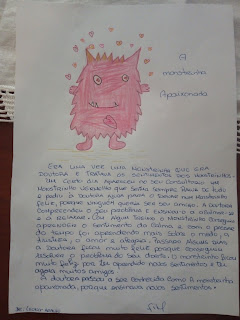 A
monstrinha
Apaixonada
ERA UMA VEZ UMA MONSTRINHA QUE ERA
DOUTORA E TRATAVA OS SENTIMENTOS DOS MONSTRINHOS.
UM CERTO DIA APARECEU NO SEU CONSULTÓRIO UM
MONSTRINHO VERMELHO QUE SENTIA SEMPRE RAIVA DE TUDO
E PEDIU À DOUTORA AJUDA PARA SE TORNAR NUM MONSTRINHO
FELIZ, PORQUE NINGUÉM QUERIA SER SEU AMIGO. A DOUTORA
COMPREENDEU O SEU PROBLEMA E ENSINOU-O A ACALMAR-SE
E A RELAXAR. COM ALGUM TREINO O MONSTRINHO COMEÇOU
A APRECIAR O SENTIMENTO DA CALMA E COM O PASSAR
DO TEMPO FOI APRENDENDO MAIS SOBRE O MEDO, A
TRISTEZA, O AMOR E ALEGRIA. PASSARAM ALGUNS DIAS,
A DOUTORA FICOU MUITO FELIZ PORQUE CONSEGUIU
RESOLVER O PROBLEMA DO SEU DOENTE. O MONSTRINHO FICOU
MUITO FELIZ POR TER APRENDIDO NOVOS SENTIMENTOS E TER
AGORA MUITOS AMIGOS.
A DOUTORA PASSOU A SER CONHECIDA COMO A MONSTRINHA
APAIXONADA, PORQUE ENSINAVA NOVOS SENTIMENTOS.
FIM